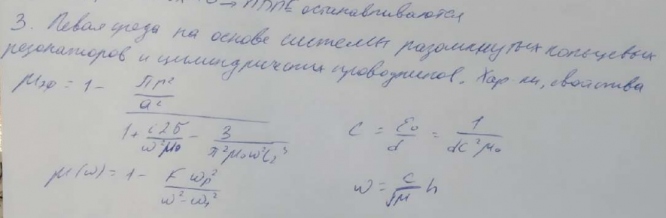 останавливаются
3. Левая среда на основе системы разомкнутых кольцевых
резонаторов и цилиндрических проводников. Хар-ки, свойства
μэф = 1 - (πr²/a²) / (1 + i2σ/(ω²μ₀) - 3/(π²μ₀ω²Cr³))
C = ε₀/d = 1/(dc²μ₀)
μ(ω) = 1 - Fωp²/(ω² - ω₀²)
ω = c/√μ h